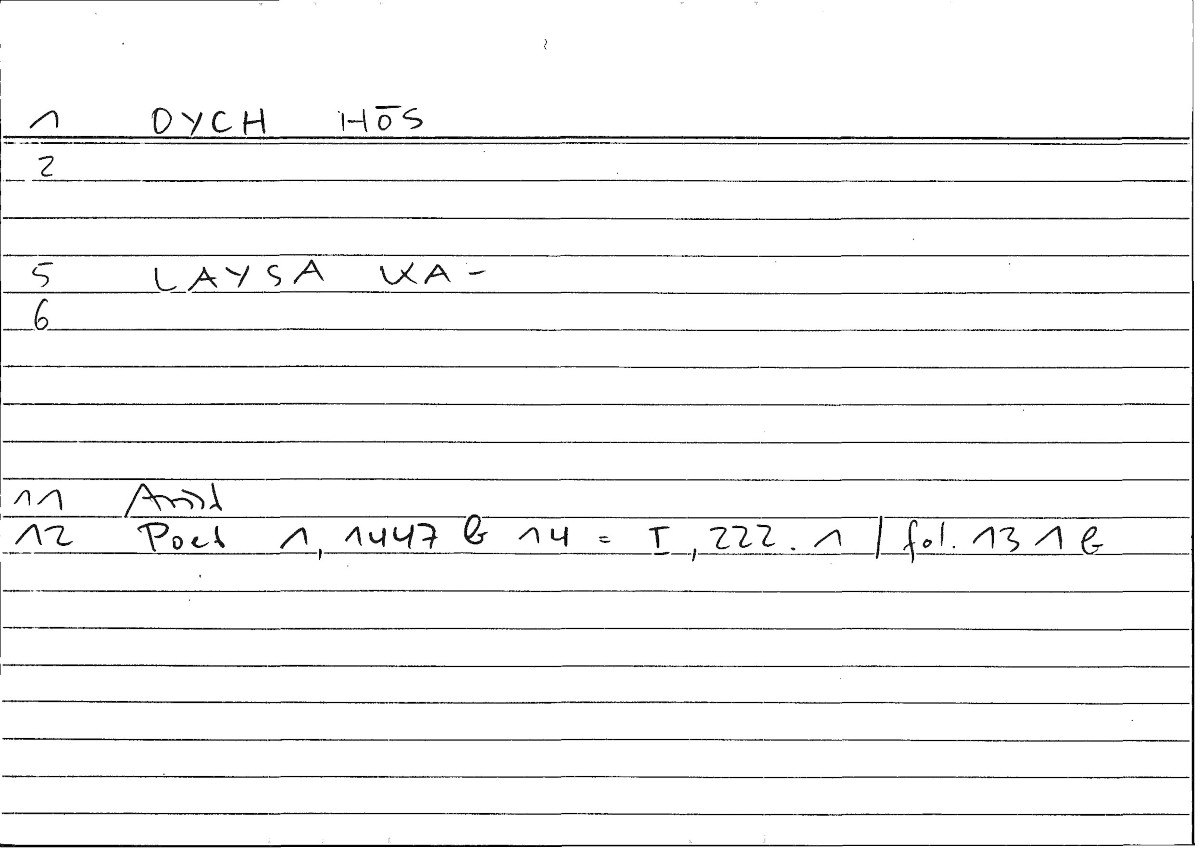 1 OYCH HŌS
2
5 LAYSA KA-
6
11 Arist
12 Poet 1, 1447 b 14 = I, 222.1 | fol. 131 b